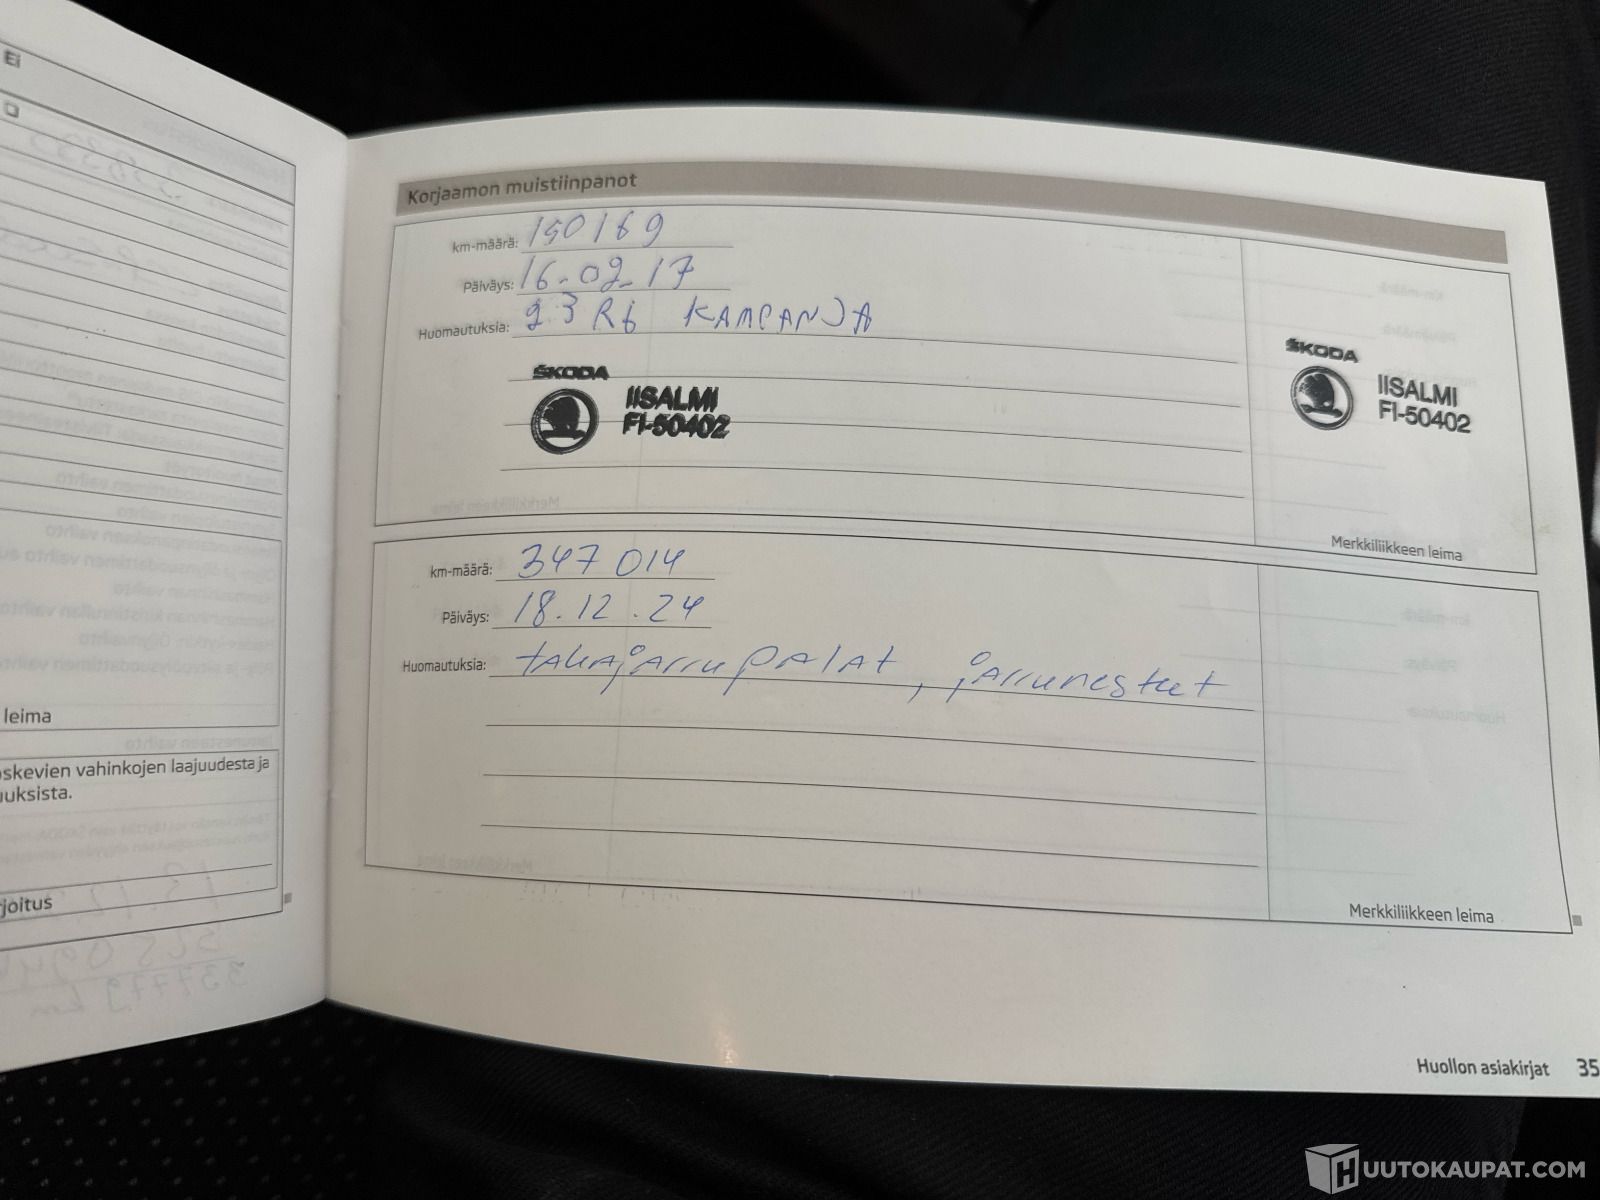 Ei
leima
oskevien vahinkojen laajuudesta ja
uuksista.
rjoitus
Korjaamon muistiinpanot
km-määrä: 150169
Päiväys: 16.02.17
Huomautuksia: 23R6 KAMPANJA
ŠKODA
IISALMI
FI-50402
ŠKODA
IISALMI
FI-50402
Merkkiliikkeen leima
km-määrä: 347 014
Päiväys: 18.12.24
Huomautuksia: takajarrupalat, jarrunesteet
Merkkiliikkeen leima
Huollon asiakirjat 35
HUUTOKAUPAT.COM